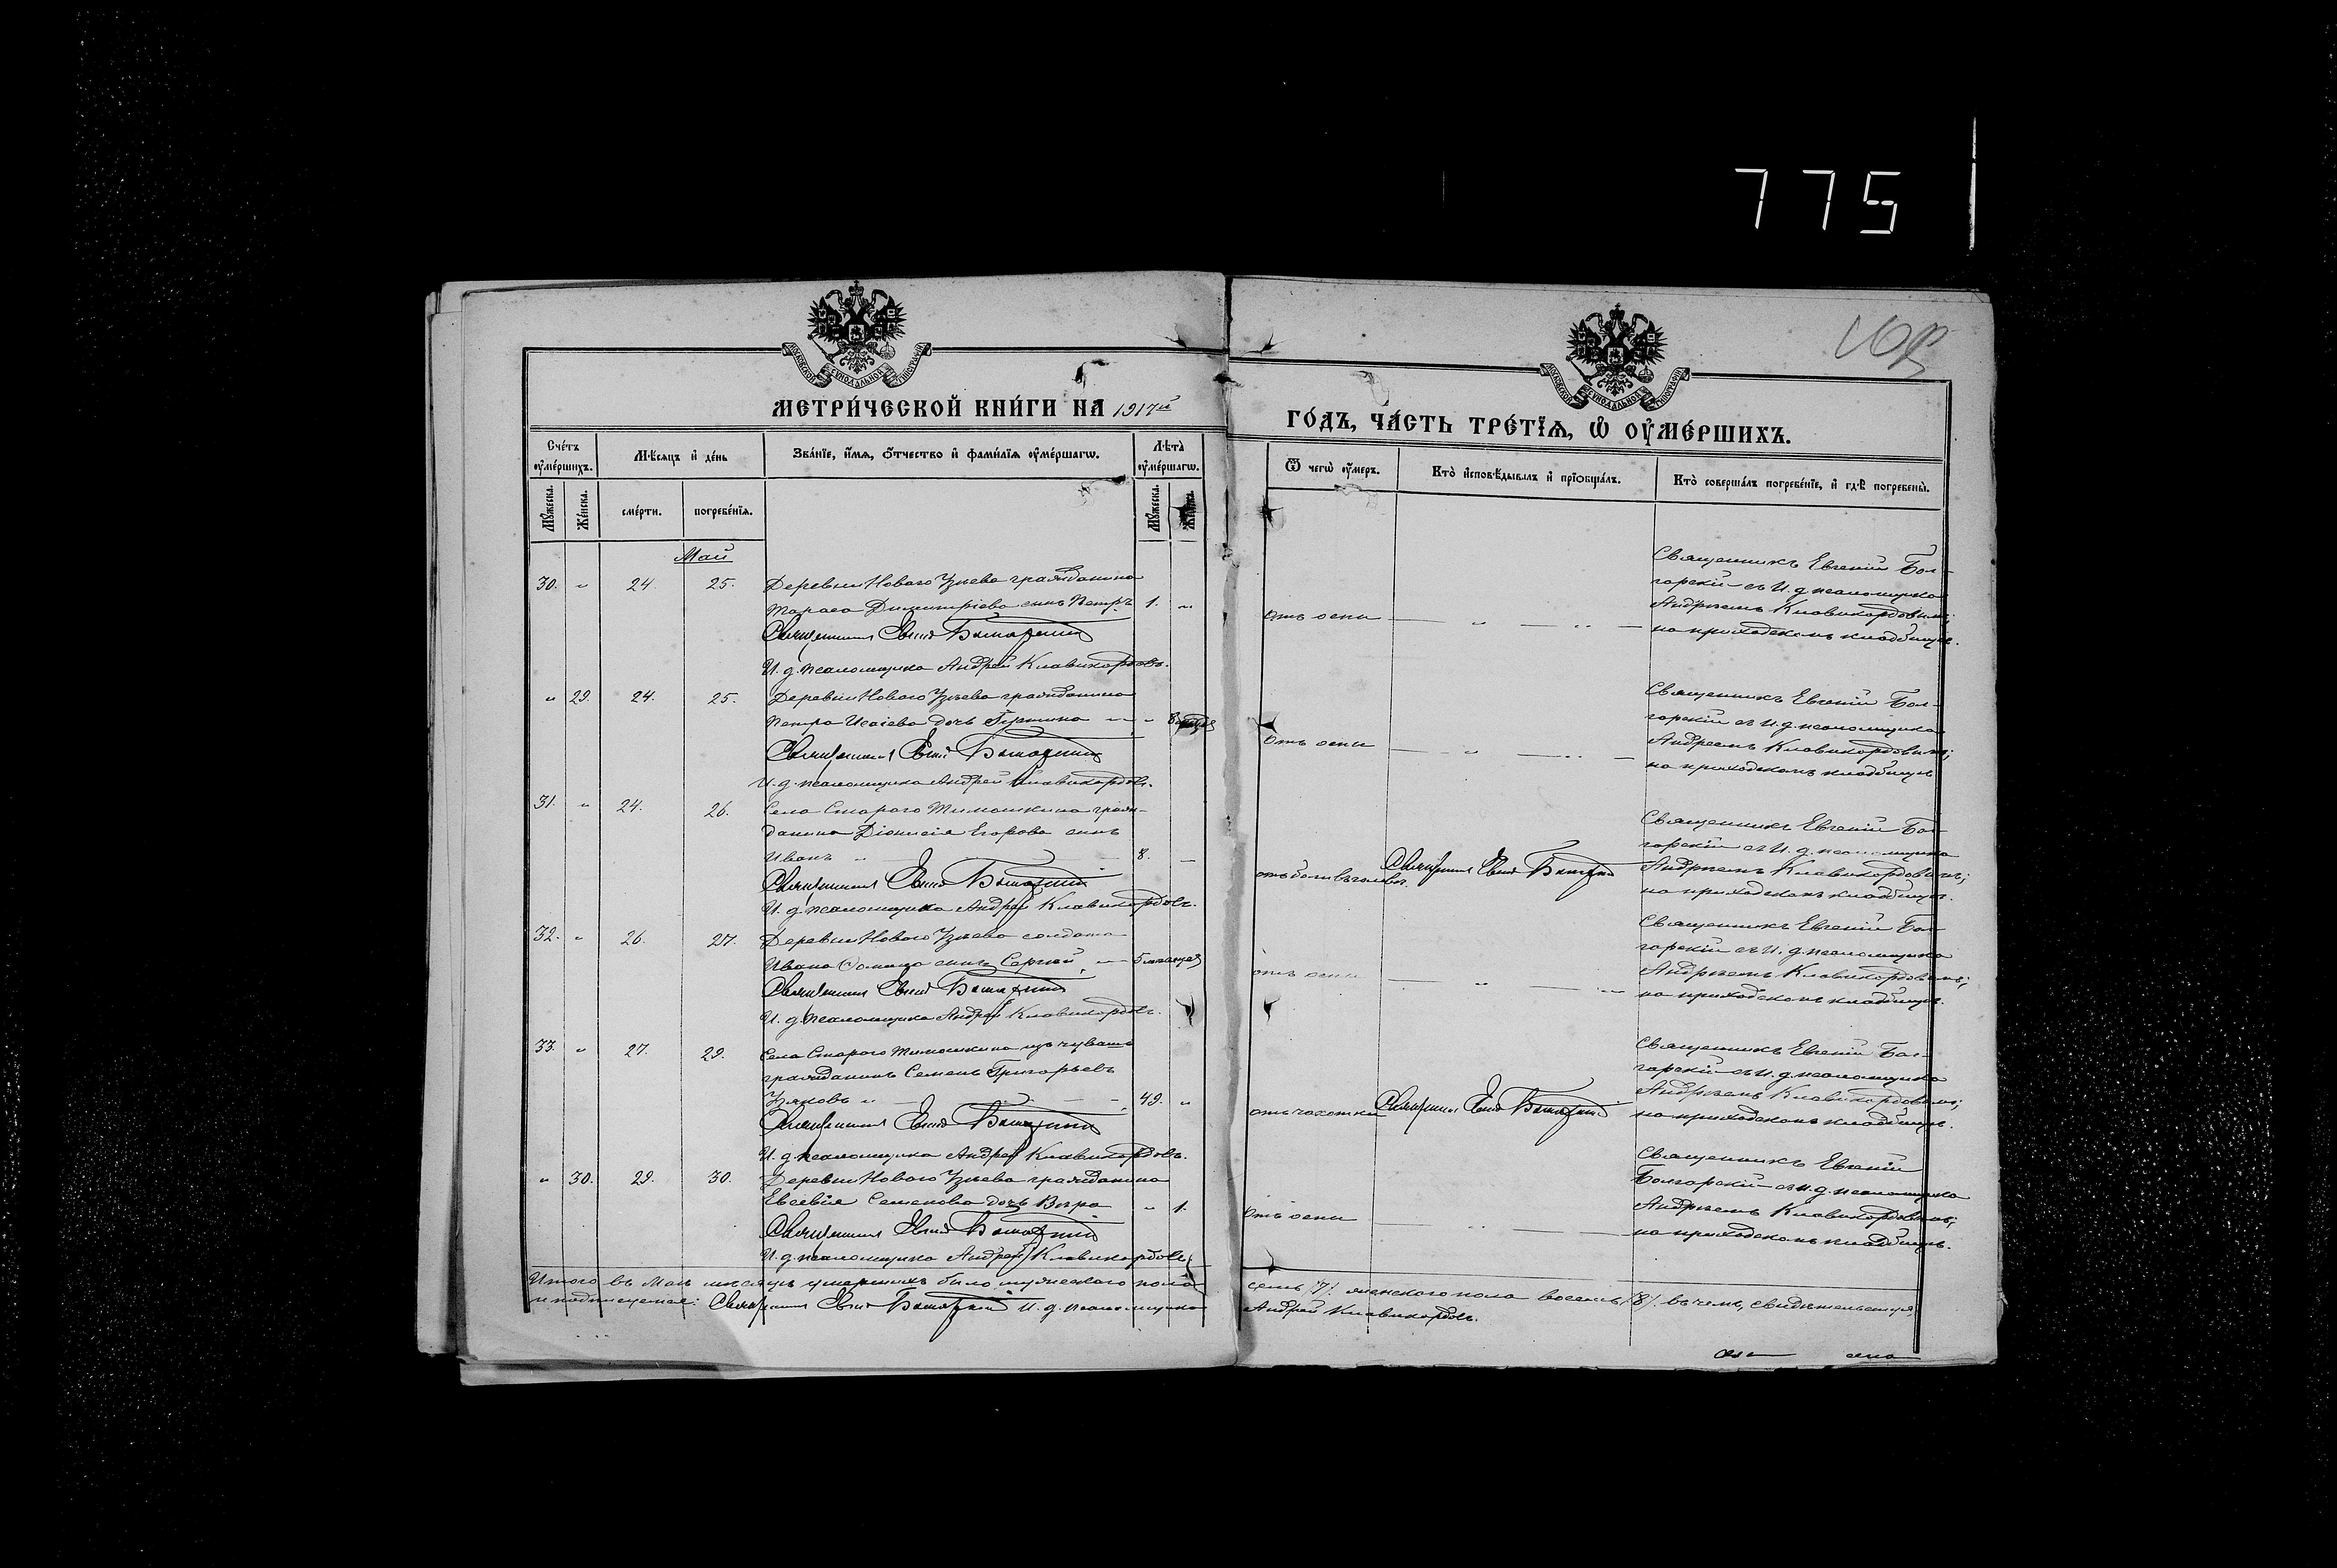 775
МЕТРИ́ЧЕСКОЙ КНИ́ГИ НА 1917й
ГО́ДЪ, ЧА́СТЬ ТРЕ́ТЇѦ, Ѡ҆ ОУ҆МЕ́РШИХЪ.
Сче́тъ оу҆ме́ршихъ.
Мѣ́сѧцъ и҆ де́нь
Зва́нїе, и҆́мѧ, ѻ҆́тчество и҆ фами́лїѧ оу҆ме́ршагѡ.
Лѣ́та оу҆ме́ршагѡ.
Ѿ чегѡ̀ оу҆́меръ.
Кто̀ и҆сповѣ́дывалъ и҆ прїѡбща́лъ.
Кто̀ соверша́лъ погребе́нїе, и҆ гдѣ̀ погребены̀.
Мꙋ́жеска.
Же́нска.
сме́рти.
погребе́нїѧ.
Мꙋ́жеска.
Май
30. „ 24. 25. Деревни Новаго Узѣева гражданина
Тараса Димитріева сынъ Петръ 1. „
Священникъ Евгений Болгарский
И. д. псаломщика Андрей Клавикордовъ.
отъ оспы
Священникъ Евгеній Бол-
гарскій съ И. д. псаломщика
Андреемъ Клавикордовымъ;
на приходскомъ кладбищѣ.
„ 29. 24. 25. Деревни Новаго Узѣева гражданина
Петра Исаіева дочь
Священникъ Евгений Болгарский
И. д. псаломщика Андрей Клавикордовъ.
Отъ оспы
Священникъ Евгеній Бол-
гарскій съ И. д. псаломщика
Андреемъ Клавикордовымъ;
на приходскомъ кладбищѣ
31. „ 24. 26. Села Стараго Тимошкина граж-
данина Діонисія Егорова сынъ
Иванъ „ 8. —
Священникъ Евгений Болгарский
И. д. псаломщика Андрей Клавикордовъ.
отъ боли въ головѣ.
Священникъ Евгений Болгарский
Священникъ Евгеній Бол-
гарскій съ И. д. псаломщика
Андреемъ Клавикордовымъ;
на приходскомъ кладбищѣ.
32. „ 26. 27. Деревни Новаго Узѣева солдата
Ивана сынъ Сергѣй, — 5 мѣсяцев
Священникъ Евгений Болгарский
И. д. псаломщика Андрей Клавикордовъ.
отъ оспы
Священникъ Евгеній Бол-
гарскій съ И. д. псаломщика
Андреемъ Клавикордовымъ;
на приходскомъ кладбищѣ.
33. „ 27. 29. Села Стараго Тимошкина изъ чувашъ
гражданинъ Семенъ Григорьевъ
49. „
Священникъ Евгений Болгарский
И. д. псаломщика Андрей Клавикордовъ.
отъ чахотки
Священникъ Евгений Болгарский
Священникъ Евгеній Бол-
гарскій съ И. д. псаломщика
Андреемъ Клавикордовымъ;
на приходскомъ кладбищѣ.
„ 30. 29. 30. Деревни Новаго Узѣева гражданина
Евсевія Семенова дочь Вѣра „ 1.
Священникъ Евгений Болгарский
И. д. псаломщика Андрей Клавикордовъ
Отъ оспы
Священникъ Евгеній
Болгарскій съ и. д. псаломщика
Андреемъ Клавикордовымъ;
на приходскомъ кладбищѣ.
Итого въ Маѣ мѣсяцѣ умершихъ было мужескаго пола семь /7/. женскаго пола восемь /8/. въ чемъ, свидѣтельствуя,
и подписуемся: Священникъ Евгений Болгарский И. д. псаломщика Андрей Клавикордовъ.